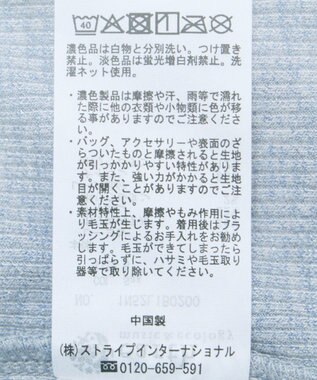 40
濃色品は白物と分別洗い。つけ置き
禁止。淡色品は蛍光増白剤禁止。洗
濯ネット使用。
・濃色製品は摩擦や汗、雨等で濡れ
た際に他の衣類や小物類に色が移
る事がありますのでご注意くださ
い。
・バッグ、アクセサリーや表面のざ
らついたものと摩擦されると生地
が引っかかりやすい特性がありま
す。また、強い力がかかると生地
目が開くことがありますのでご注
意ください。
・素材特性上、摩擦やもみ作用によ
り毛玉が生じます。着用後はブラ
ッシングによるお手入れをお勧め
します。毛玉ができてしまったら
引っぱらずに、ハサミや毛玉取り
器等で取り除いてください。
中国製
(株)ストライプインターナショナル
0120-659-591